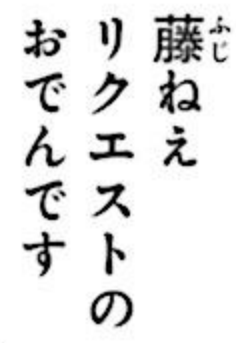 藤ねえ
リクエストの
おでんです